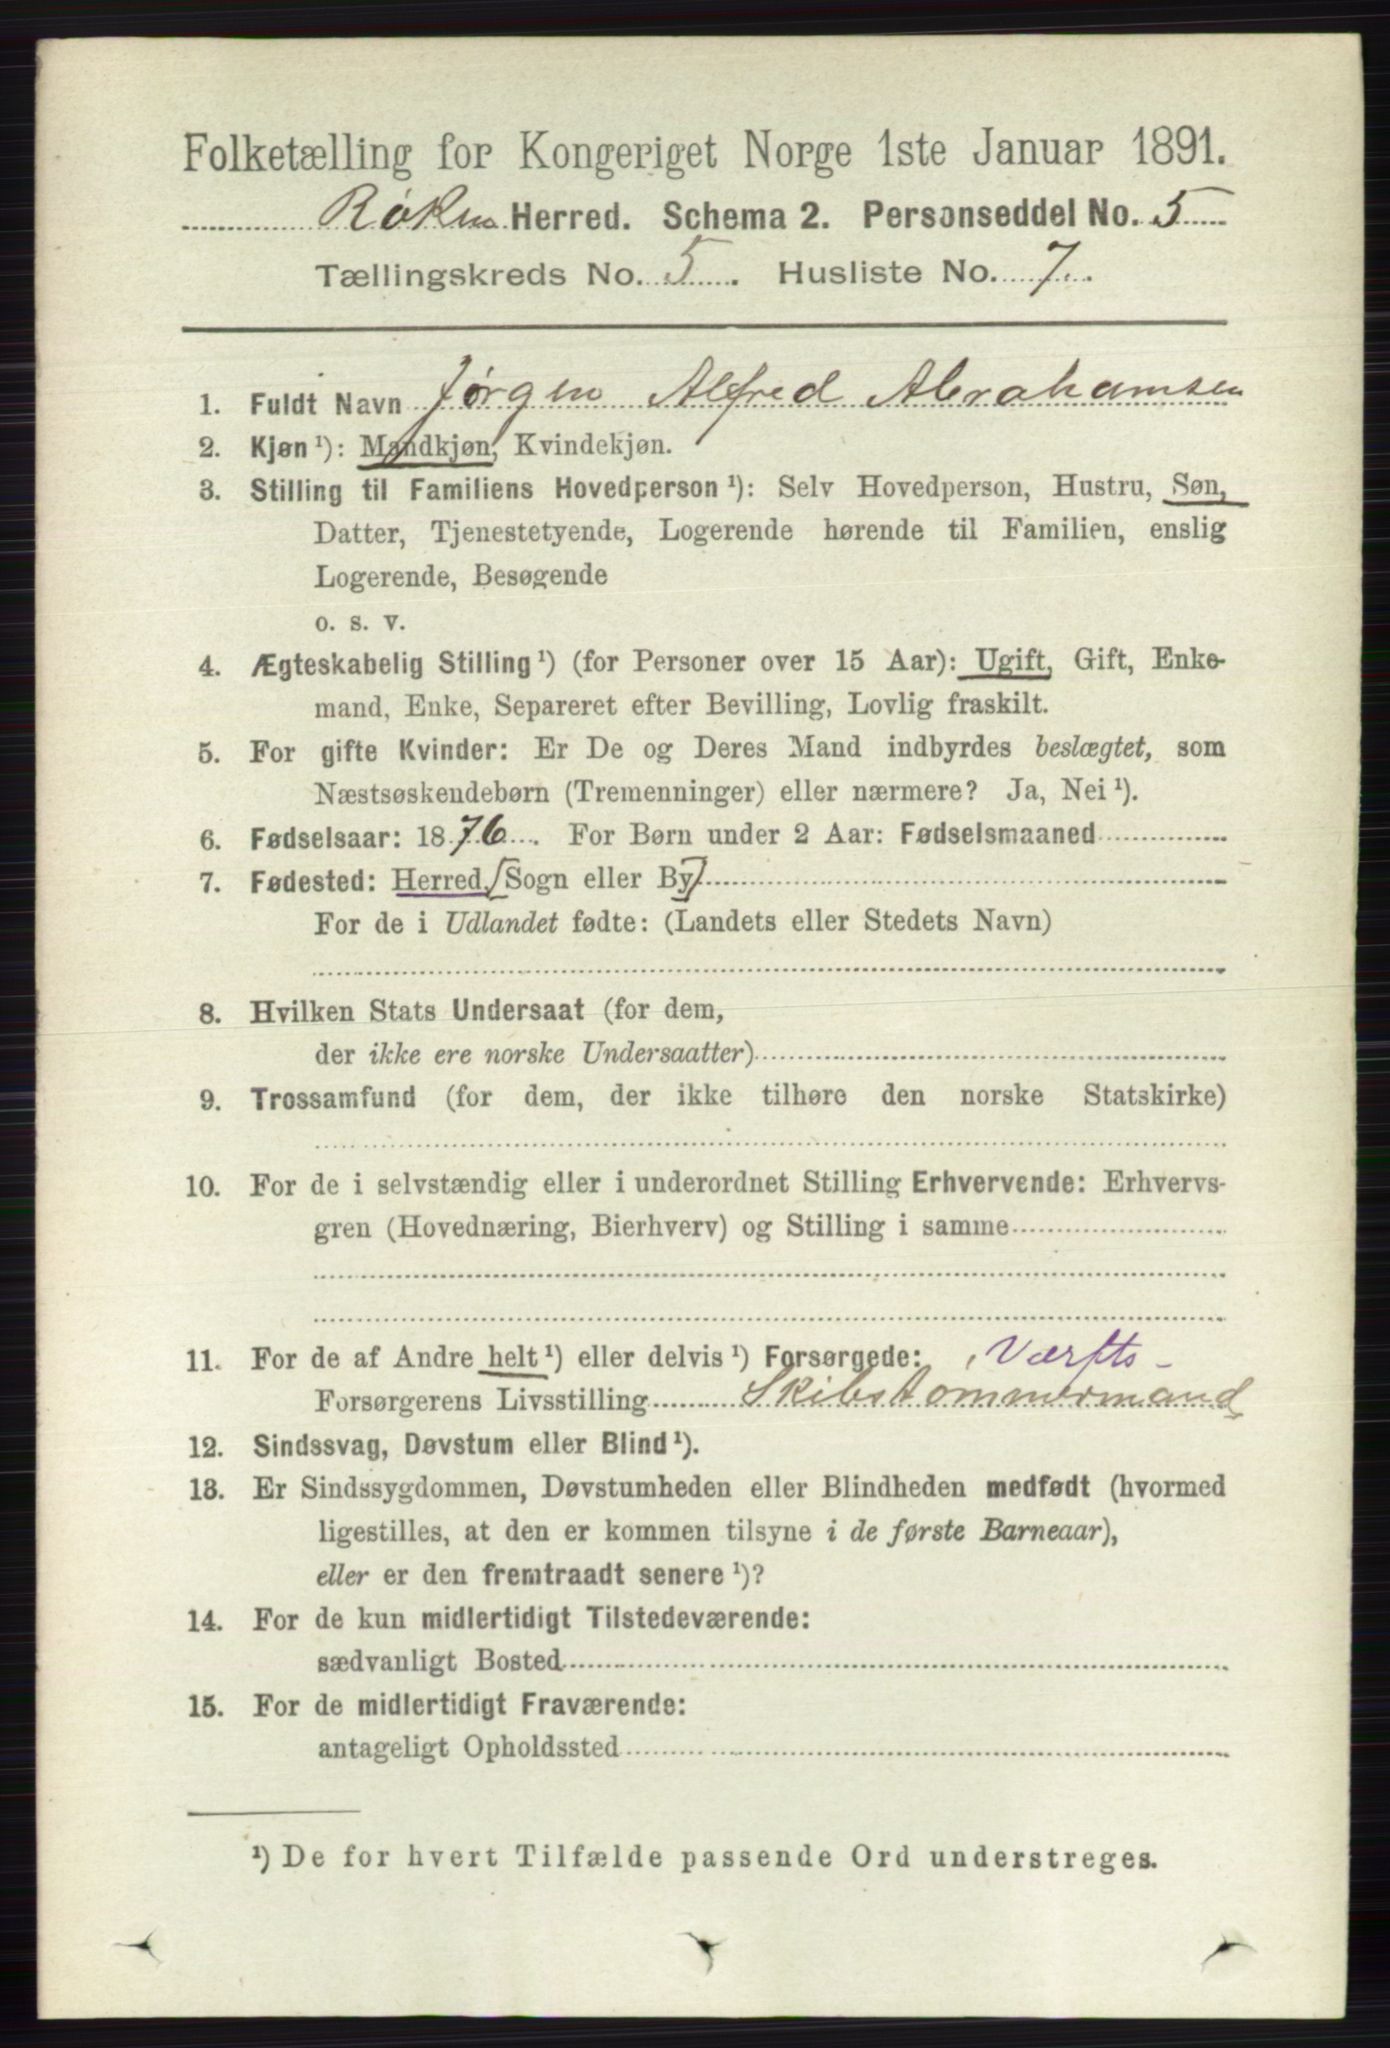 Folketælling for Kongeriget Norge 1ste Januar 1891.
Røken Herred. Schema 2. Personseddel No. 5
Tællingskreds No. 5. Husliste No. 7.
1. Fuldt Navn Jørgen Alfred Abrahamsen
2. Kjøn¹): Mandkjøn, Kvindekjøn.
3. Stilling til Familiens Hovedperson¹): Selv Hovedperson, Hustru, Søn,
Datter, Tjenestetyende, Logerende hørende til Familien, enslig
Logerende, Besøgende
o. s. v.
4. Ægteskabelig Stilling¹) (for Personer over 15 Aar): Ugift, Gift, Enke-
mand, Enke, Separeret efter Bevilling, Lovlig fraskilt.
5. For gifte Kvinder: Er De og Deres Mand indbyrdes beslægtet, som
Næstsøskendebørn (Tremenninger) eller nærmere? Ja, Nei¹).
6. Fødselsaar: 1876. For Børn under 2 Aar: Fødselsmaaned
7. Fødested: Herred, [Sogn eller By]
For de i Udlandet fødte: (Landets eller Stedets Navn)
8. Hvilken Stats Undersaat (for dem,
der ikke ere norske Undersaatter)
9. Trossamfund (for dem, der ikke tilhøre den norske Statskirke)
10. For de i selvstændig eller i underordnet Stilling Erhvervende: Erhvervs-
gren (Hovednæring, Bierhverv) og Stilling i samme
11. For de af Andre helt¹) eller delvis¹) Forsørgede: Værfts-
Forsørgerens Livsstilling Skibstømmermand
12. Sindssvag, Døvstum eller Blind¹).
13. Er Sindssygdommen, Døvstumheden eller Blindheden medfødt (hvormed
ligestilles, at den er kommen tilsyne i de første Barneaar),
eller er den fremtraadt senere¹)?
14. For de kun midlertidigt Tilstedeværende:
sædvanligt Bosted
15. For de midlertidigt Fraværende:
antageligt Opholdssted
¹) De for hvert Tilfælde passende Ord understreges.